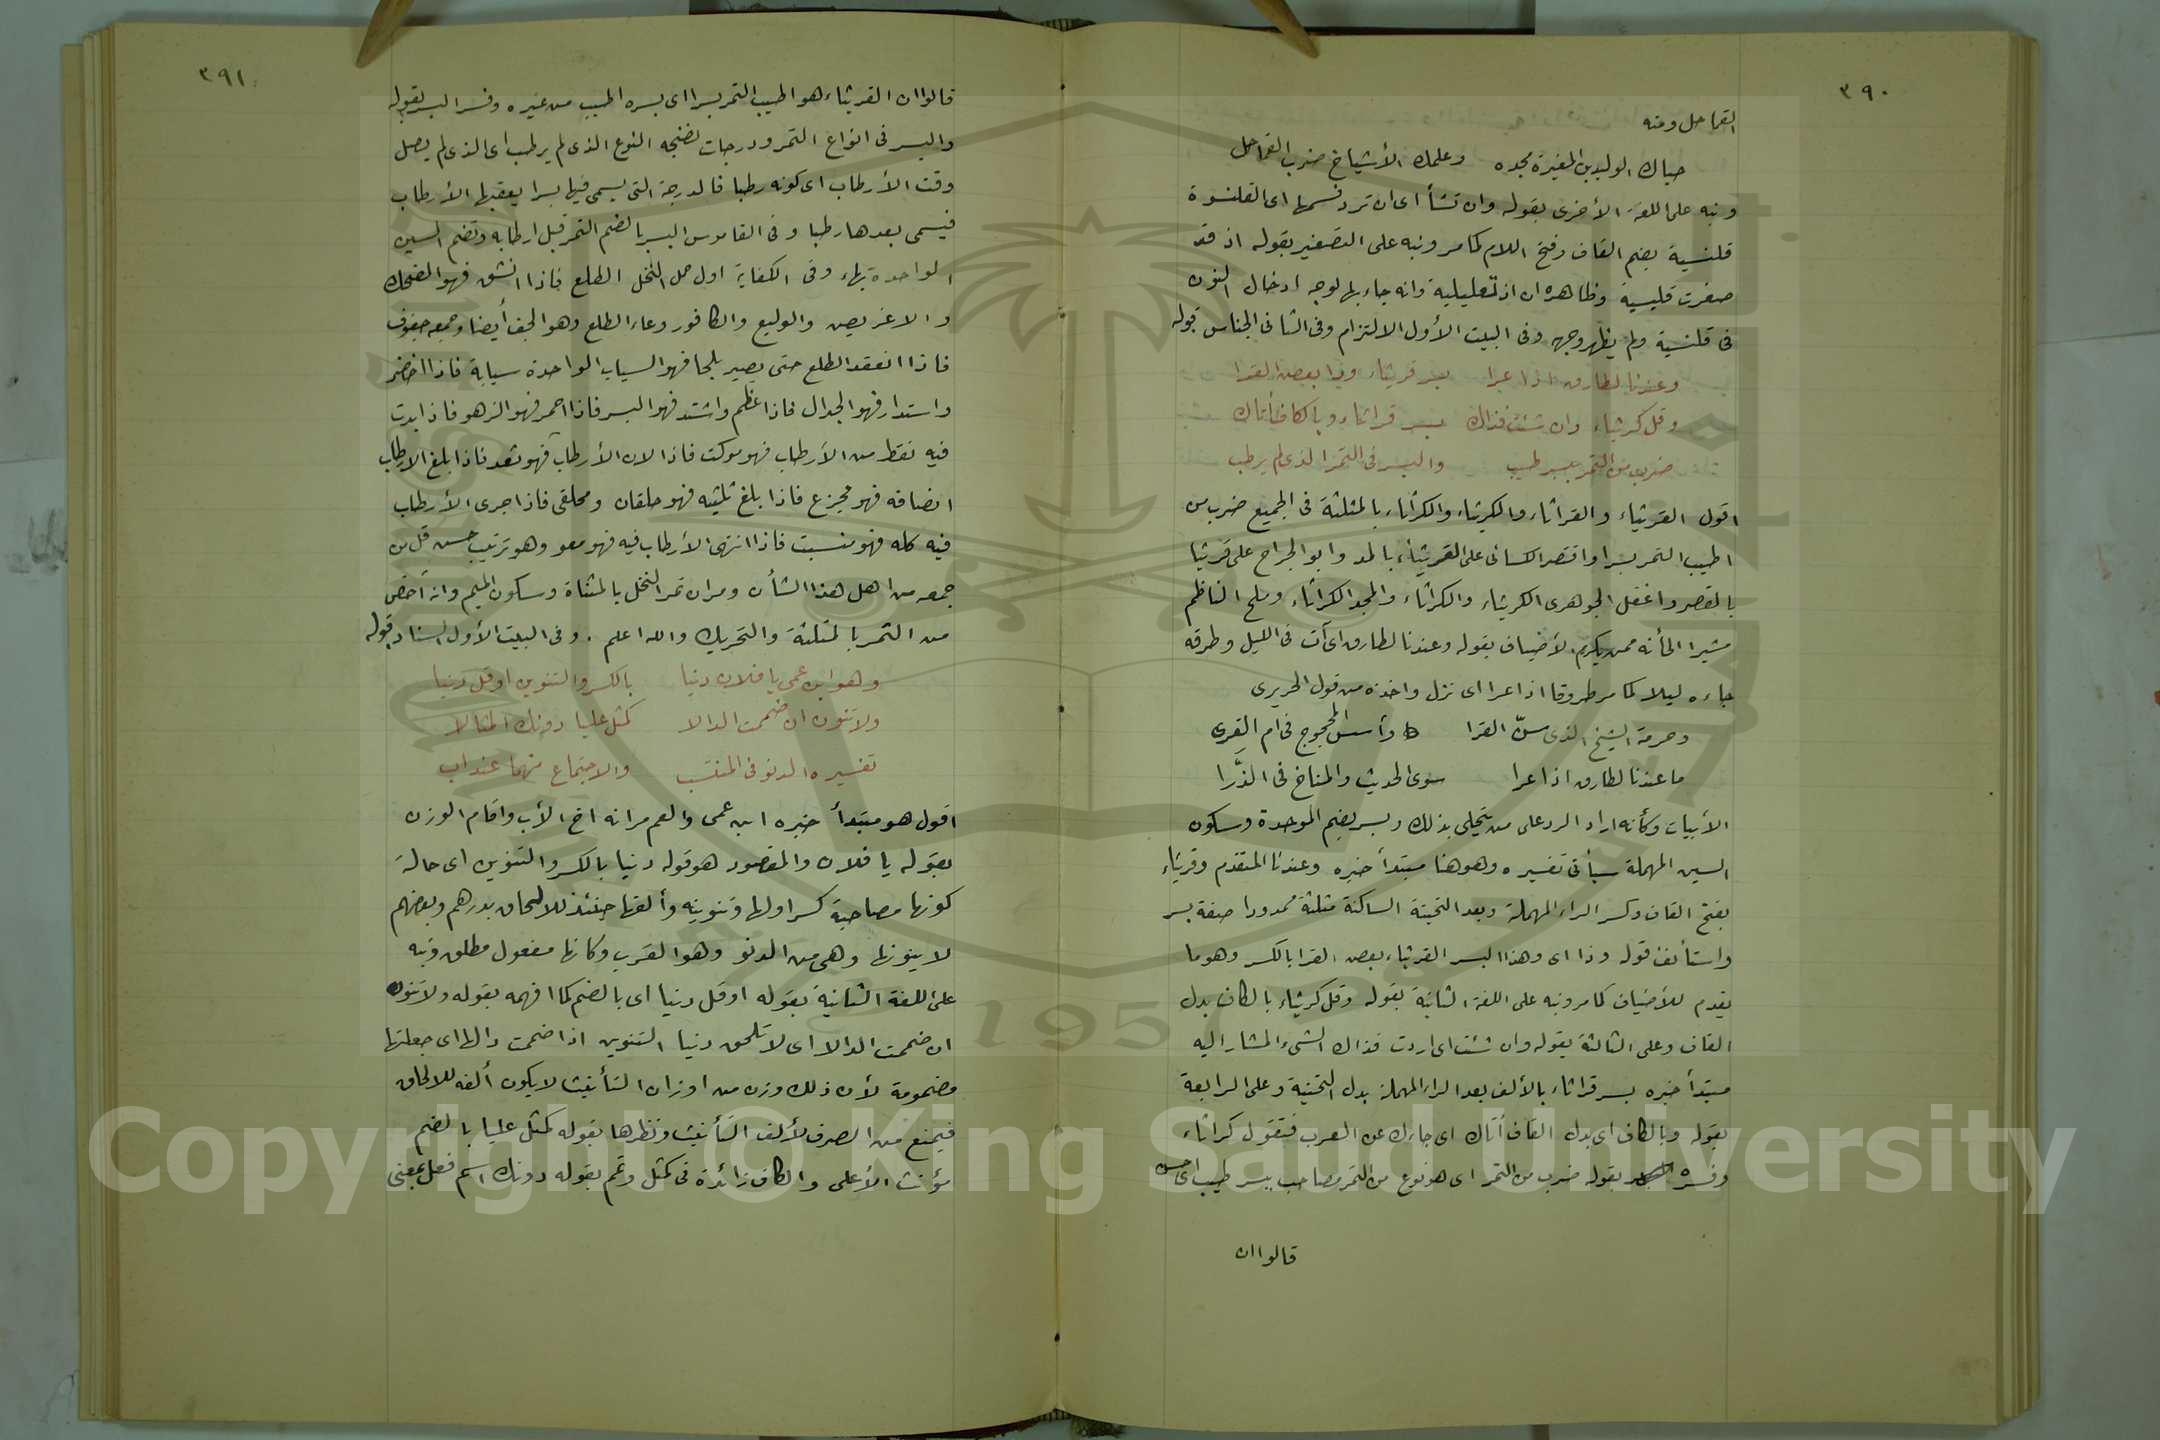 ٣٩٠
القماحل ومنه
حباك الوليد بن المغيرة مجده وعلمك الأشياخ ضرب القماحل
ونبه على اللغة الأخرى بقوله وان تشأ اى ان ترد قسمها اى القلنسوة
قلنسية بضم القاف وفتح اللام كما مر ونبه على التصغير بقوله اذ قد
صغرت قليسية وظاهره ان اذ تعليلية وانه جاء بها لوجه ادخال النون
فى قلنسية ولم يظهر وجهه وفى البيت الأول الالتزام وفى الثانى الجناس قوله
وعندنا لطارق اذا عرا بسر قريثاء وذا بعض القرا
وقل كريثاء وان شئت فذاك بسر قراثاء وبالكاف أتاك
ضرب من التمر ببسر طيب والبسر فى التمر الذى لم يرطب
اقول القريثاء والقراثاء والكريثاء والكراثاء بالمثلثة فى الجميع ضرب من
اطيب التمر بسرا واقتصر الكسائى على القريثاء بالمد وابو الجراح على قريثا
بالقصر واغفل الجوهرى الكريثاء والكراثاء والمجد الكراثاء وملح الناظم
مشيرا الى أنه ممن يكرم الأضياف بقوله وعندنا لطارق اى آت فى الليل وطرقه
جاءه ليلا كما مر طروقا اذا عرا اى نزل واخذه من قول الحريرى
وحرمة الشيخ الذى سنّ القرا وأسس المحجوج فى ام القرى
ما عندنا لطارق اذا عرا سوى الحديث والمناخ فى الذَّرا
الأبيات وكأنه اراد الرد على من يتحلى بذلك وبسر بضم الموحدة وسكون
السين المهملة سيأتى تفسيره وهو هنا مبتدأ خبره وعندنا المتقدم وقريثاء
بفتح القاف وكسر الراء المهملة وبعد التحتية الساكنة مثلثة ممدودا صفة بسر
واستأنف قوله وذا اى وهذا البسر القريثاء بعض القرا بالكسر وهو ما
يقدم للأضياف كما مر ونبه على اللغة الثانية بقوله وقل كريثاء بالكاف بدل
القاف وعلى الثالثة بقوله وان شئت اى اردت فذاك الشىء المشار اليه
مبتدأ خبره بسر قراثاء بالألف بعد الراء المهملة بدل التحتية وعلى الرابعة
بقوله وبالكاف اى بدل القاف أتاك اى جاءك عن العرب فتقول كراثاء
وفسره بقوله ضرب من التمر اى هو نوع من التمر مصاحب ببسر طيب اى حسن
قالوا ان
٣٩١
قالوا ان القريثاء هو اطيب التمر بسرا اى بسره اطيب من غيره وفسر البسر بقوله
والبسر فى انواع التمر ودرجات نضجه النوع الذى لم يرطب اى الذى لم يصل
وقت الأرطاب اى كونه رطبا فالدرجة التى يسمى فيها بسرا يعقبها الأرطاب
فيسمى بعدها رطبا وفى القاموس البسر بالضم التمر قبل ارطابه وتضم السين
الواحدة بهاء وفى الكفاية اول حمل النخل الطلع فاذا انشق فهو الضحك
والاغريض والوليع والكافور وعاء الطلع وهو الجف أيضا وجمعه جفوف
فاذا انعقد الطلع حتى يصير بلحا فهو السياب الواحدة سيابة فاذا اخضر
واستدار فهو الجدال فاذا عظم واشتد فهو البسر فاذا احمر فهو الزهو فاذا بدت
فيه نقط من الأرطاب فهو موكت فاذا لان الأرطاب فهو ثعد فاذا بلغ الارطاب
انصافه فهو مجزع فاذا بلغ ثلثيه فهو حلقان ومحلقى فاذا جرى الأرطاب
فيه كله فهو منسبت فاذا انتهى الأرطاب فيه فهو معو وهو ترتيب حسن قل من
جمعه من اهل هذا الشأن ومر ان تمر النخل بالمثناة وسكون الميم وانه أخص
من الثمر بالمثلثة والتحريك والله اعلم . وفى البيت الأول السناد قوله
وهو ابن عمى يا فلان دنيا بالكسر والتنوين او قل دنيا
ولا تنون ان ضممت الدالا كمثل عليا دونك المثالا
تفسيره الدنو فى المنتسب والاجتماع منهما عند اب
اقول هو مبتدأ خبره ابن عمى والعم مر انه اخ الأب واقام الوزن
بقوله يا فلان والمقصود هو قوله دنيا بالكسر والتنوين اى حالة
كونها مصاحبة كسر اولها وتنوينه وألفها حينئذ للالحاق بدرهم وبعضهم
لا ينونها وهى من الدنو وهو القرب وكانها مفعول مطلق ونبه
على اللغة الثانية بقوله او قل دنيا اى بالضم كما افهمه بقوله ولا تنون
ان ضممت الدالا اى لا تلحق دنيا التنوين اذا ضممت دالها اى جعلتها
مضمومة لأن ذلك وزن من اوزان التأنيث لا يكون ألفه للالحاق
فيمنع من الصرف لألف التأنيث ونظرها بقوله كمثل عليا بالضم
مؤنث الأعلى والكاف زائدة فى كمثل وتمم بقوله دونك اسم فعل بمعنى
Copyright © King Saud University
195